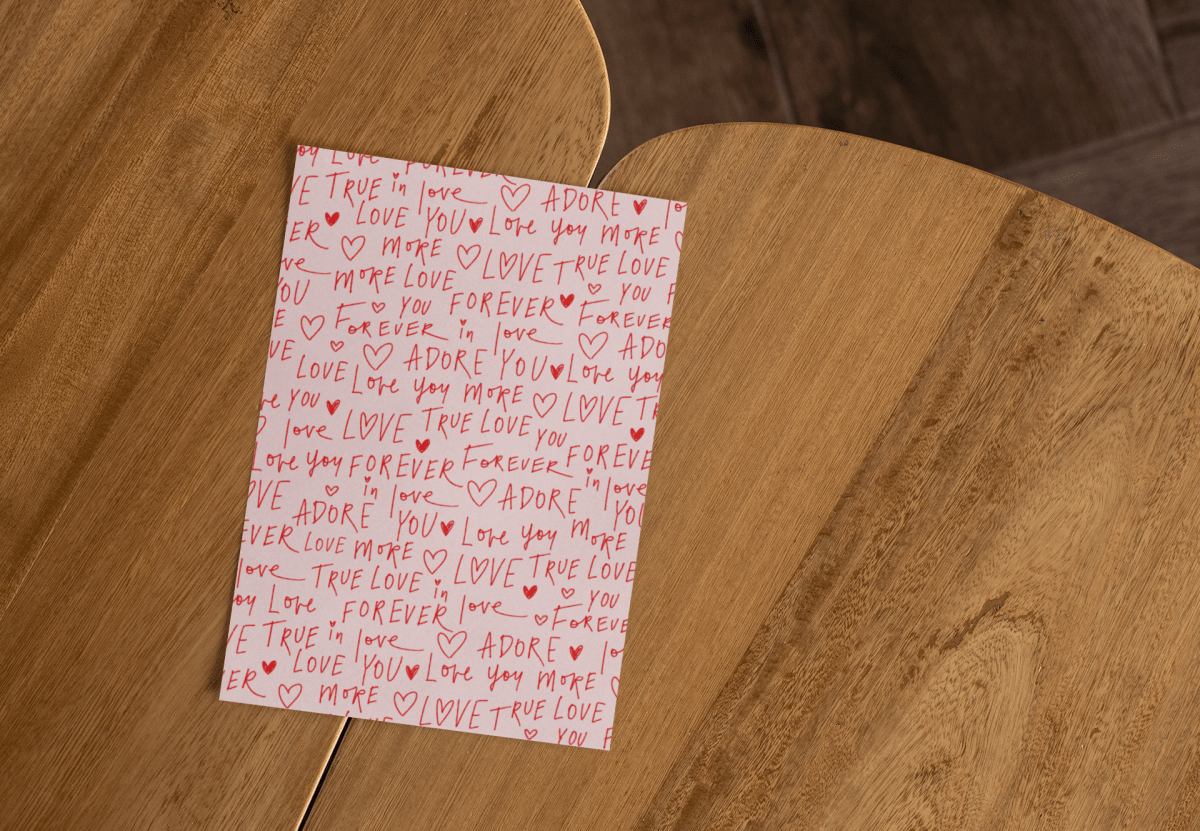 oy Love FOREVER
VE TRUE in love ♡ ADORE ♥ lo
ER ♥ LOVE YOU ♥ Love you MORE
♡ MORE ♡ LOVE TRUE LOVE
ve MORE LOVE ♡ YOU F
OU ♡ YOU FOREVER ♥ FOREVER
E ♡ FOREVER in love ♡ ADO
VE ♡ ♡ ADORE YOU ♥ Love you
LOVE Love you MORE ♡ LOVE TR
ve YOU ♥ TRUE LOVE YOU ♥
love LOVE ♥ FOREVER FOREVE
Love you FOREVER in love
OVE ♡ in love ♡ ADORE YOU
ADORE YOU ♥ Love you MORE
EVER LOVE MORE ♡ LOVE TRUE LOVE
love TRUE LOVE in ♥ ♡ YOU
oy Love FOREVER love ♡ FOREVE
VE TRUE in love ♡ ADORE ♥ lo
ER ♥ LOVE YOU ♥ Love you MORE
♡ MORE ♡ LOVE TRUE LOVE
♡ YOU F